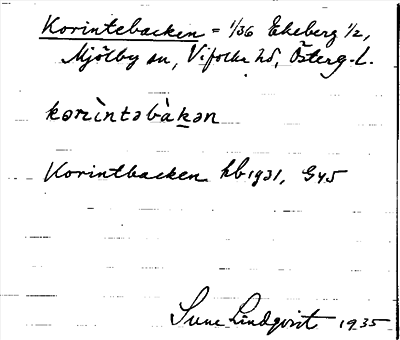 Korintebacken = 1/36 Ekeberg 1/2,
Mjölby sn, Vifolka hd, Österg. L.
kərìntəbàkən
Korintbacken hb 1931, G45
Sune Lindqvist 1935